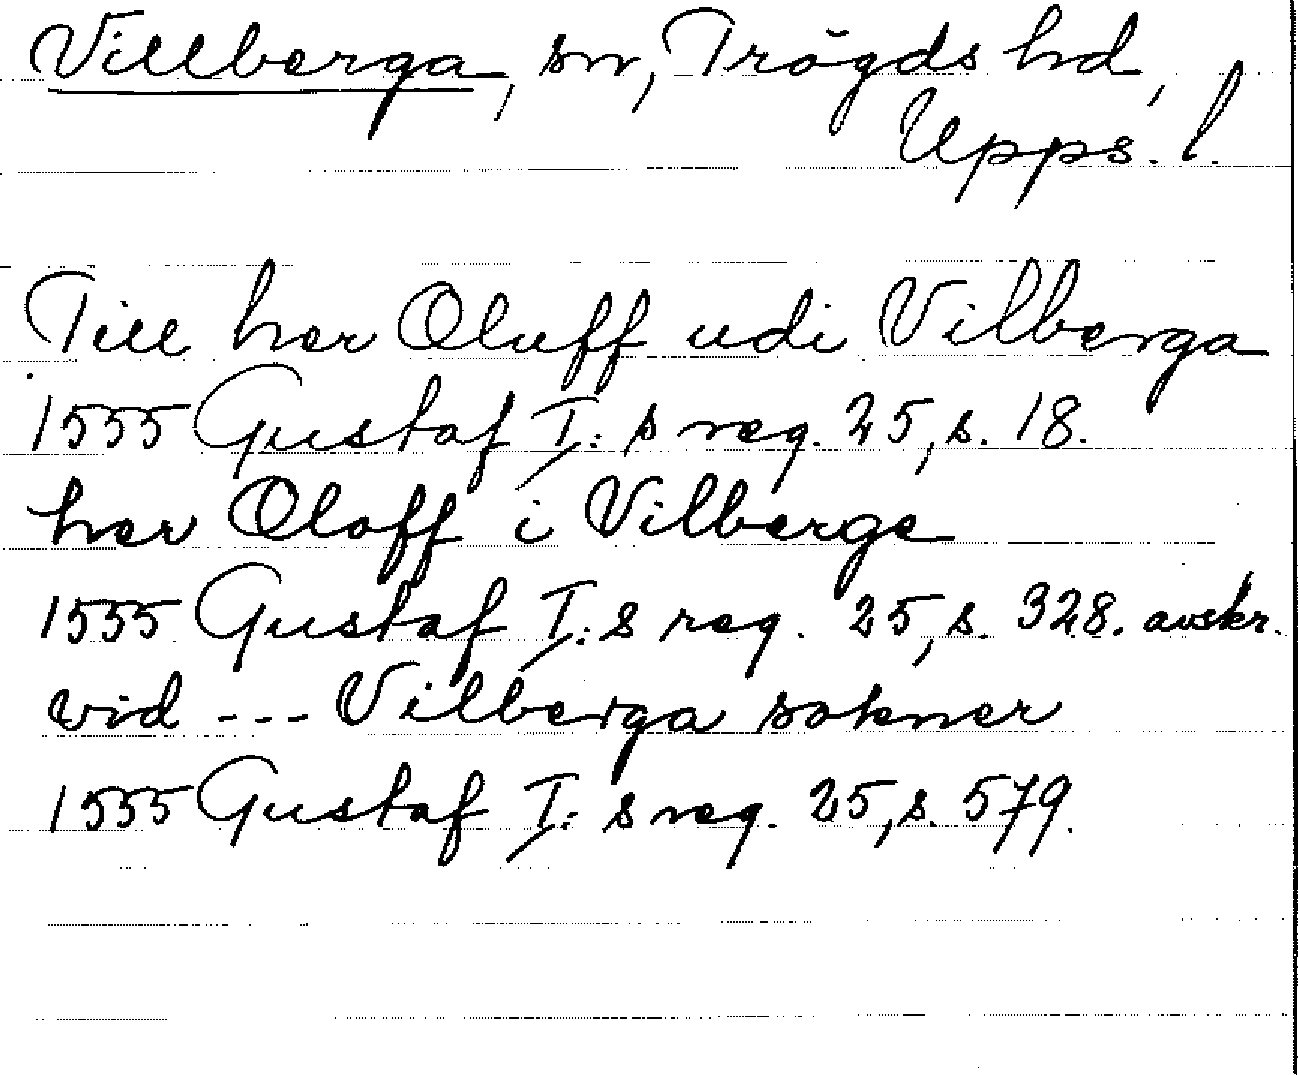 Villberga, sn, Trögds hd,
Upps. l.
Till her Oluff udi Vilberga
1555 Gustaf I:s reg. 25, s. 18.
her Oloff i Vilberge
1555 Gustaf I:s reg. 25, s. 328. avskr.
vid --- Vilberga sokner
1555 Gustaf I:s reg. 25, s. 579.